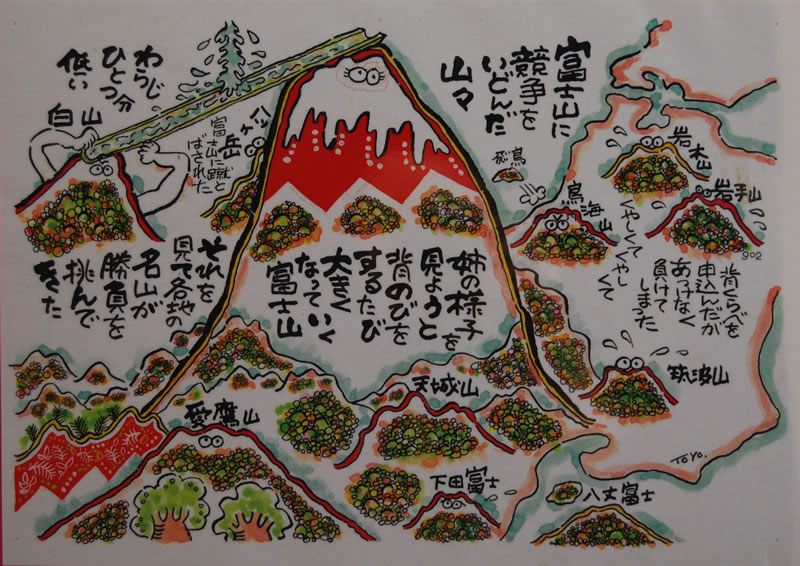 富士山に
競争を
いどんだ
山々
わらじ
ひとつ分
低い
白山
八ヶ岳
富士山に蹴と
ばされた
飛島
鳥海山
岩木山
岩手山
902
背くらべを
申込んだが
あっけなく
負けて
しまった
くやしくてくやしくて
筑波山
姉の様子を
見ようと
背のびを
するたび
大きく
なっていく
富士山
それを
見て各地の
名山が
勝負を
挑んで
きた
愛鷹山
天城山
下田富士
八丈富士
TOYO.